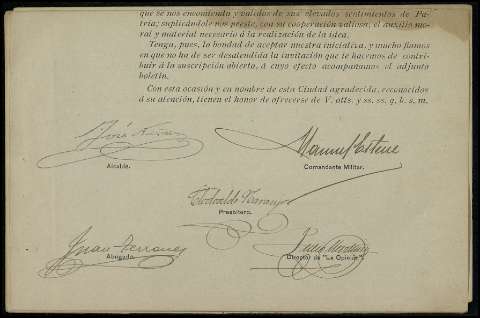 que se nos encomienda y validos de sus elevados sentimientos de Pa-
tria; suplicándole nos preste, con su cooperación valiosa, el auxilio mo-
ral y material necesario á la realización de la idea.
Tenga, pues, la bondad de aceptar nuestra iniciativa, y mucho fiamos
en que no ha de ser desatendida la invitación que le hacemos de contri-
buir á la suscripción abierta, á cuyo efecto acompañamos el adjunto
boletín.
Con esta ocasión y en nombre de esta Ciudad agradecida, reconocidos
á su atención, tienen el honor de ofrecerse de V. atts. y ss. ss. q. b. s. m.
José
Manuel Esteve
Alcalde.
Comandante Militar.
Naranjo
Presbítero.
Juan Serrano
Abogado.
Director de "La Opinión".